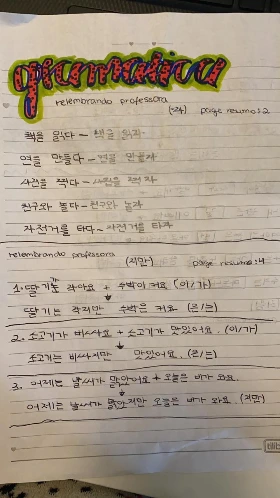 gramática
relembrando professora
(-자) page resumo: 2
책을 읽다 – 책을 읽자
연을 만들다 – 연을 만들자
사진을 찍다 – 사진을 찍자
친구와 놀다 – 친구와 놀자
자전거를 타다 – 자전거를 타자
relembrando professora
(지만) page resumo: 4
1. 딸기는 작아요 + 수박이 커요 (이/가)
딸기는 작지만 수박은 커요 (은/는)
2. 소고기가 비싸요 + 소고기가 맛있어요. (이/가)
소고기는 비싸지만 맛있어요. (은/는)
3. 어제는 날씨가 맑았어요 + 오늘은 비가 와요.
어제는 날씨가 맑았지만 오늘은 비가 와요. (지만)